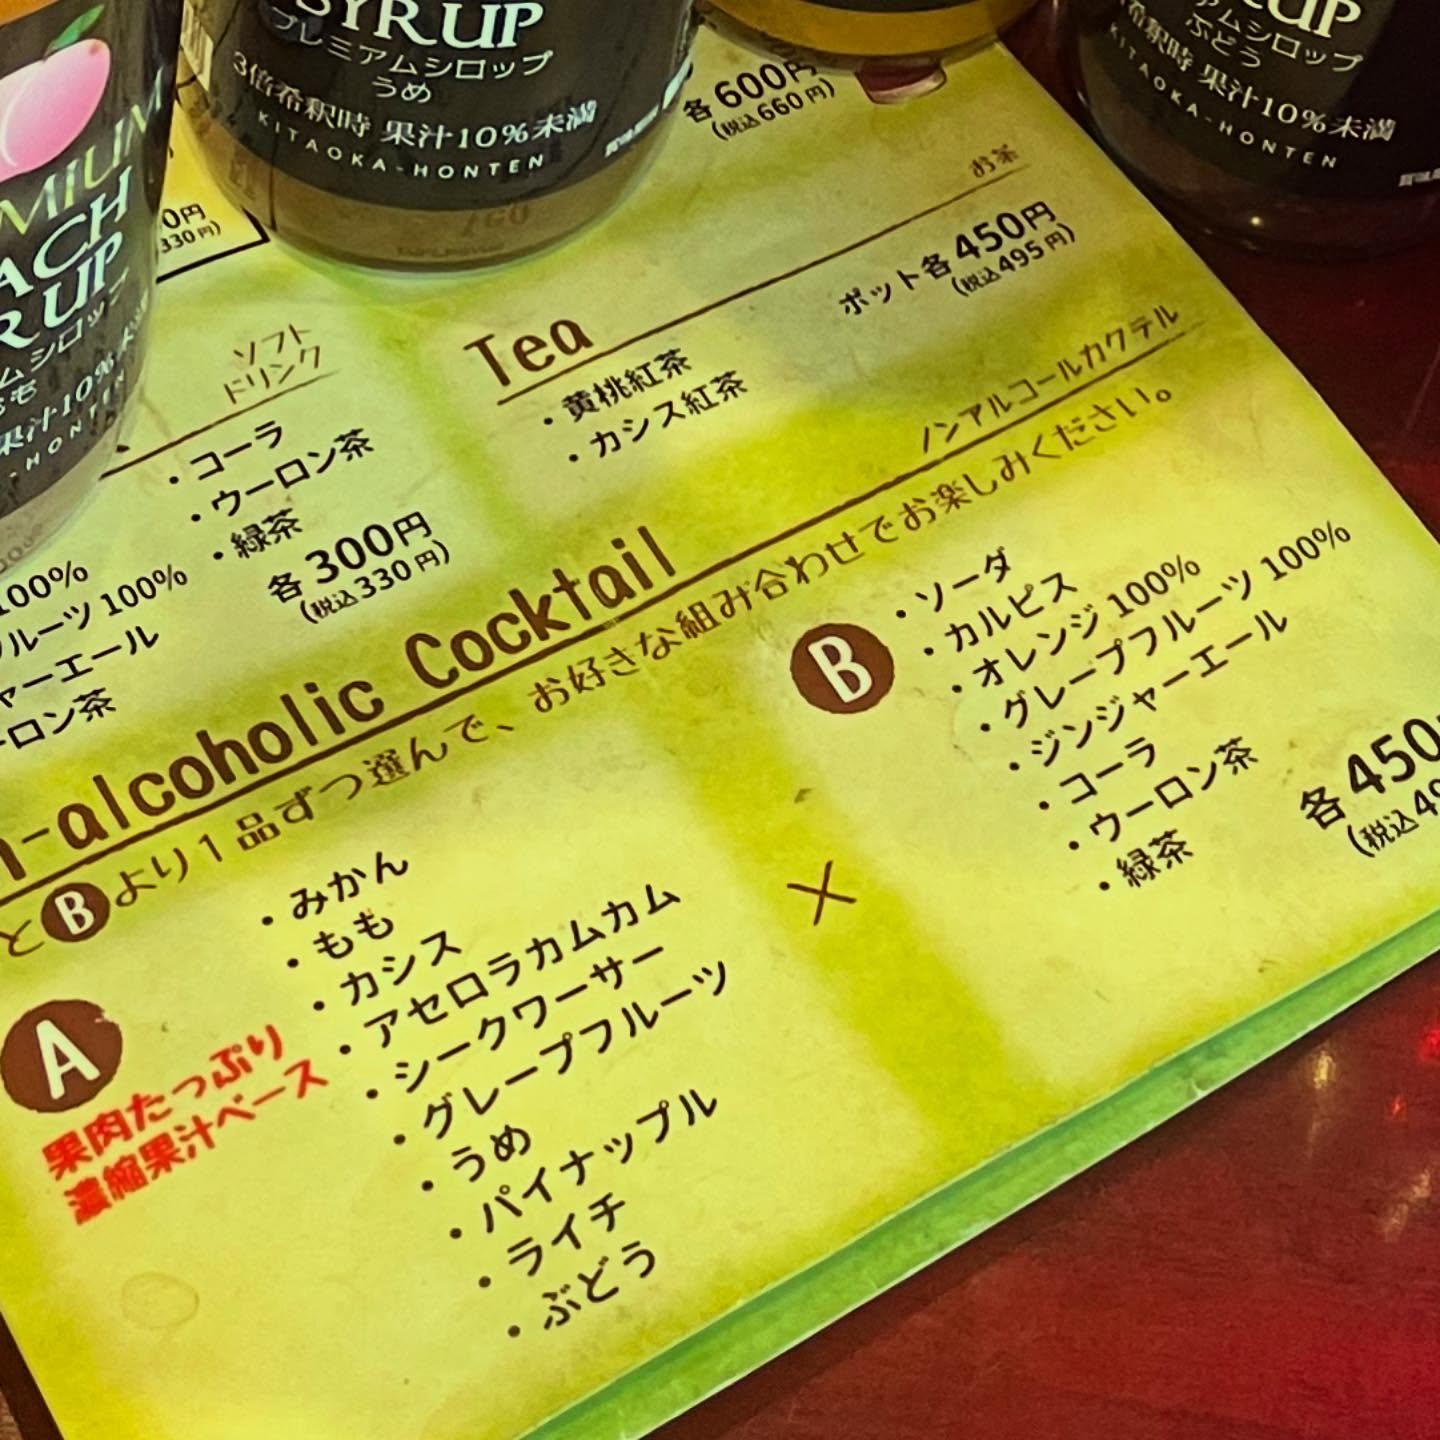 SYRUP
プレミアムシロップ
うめ
3倍希釈時 果汁10%未満
KITAOKA-HONTEN
RUP
ムシロップ
ぶどう
希釈時 果汁10%未満
KITAOKA-HONTEN
MIUM
ACH
RUP
ムシロップ
もも
果汁10%未
-HONTEN
各600円
(税込660円)
0円
330円)
お茶
Tea
ポット各450円
(税込495円)
・黄桃紅茶
・カシス紅茶
ソフト
ドリンク
・コーラ
・ウーロン茶
・緑茶
各300円
(税込330円)
100%
フルーツ100%
ャーエール
ーロン茶
ノンアルコールカクテル
n-alcoholic Cocktail
とBより1品ずつ選んで、お好きな組み合わせでお楽しみください。
A
果肉たっぷり
濃縮果汁ベース
・みかん
・もも
・カシス
・アセロラカムカム
・シークワーサー
・グレープフルーツ
・うめ
・パイナップル
・ライチ
・ぶどう
×
B
・ソーダ
・カルピス
・オレンジ100%
・グレープフルーツ100%
・ジンジャーエール
・コーラ
・ウーロン茶
・緑茶
各450円
(税込49